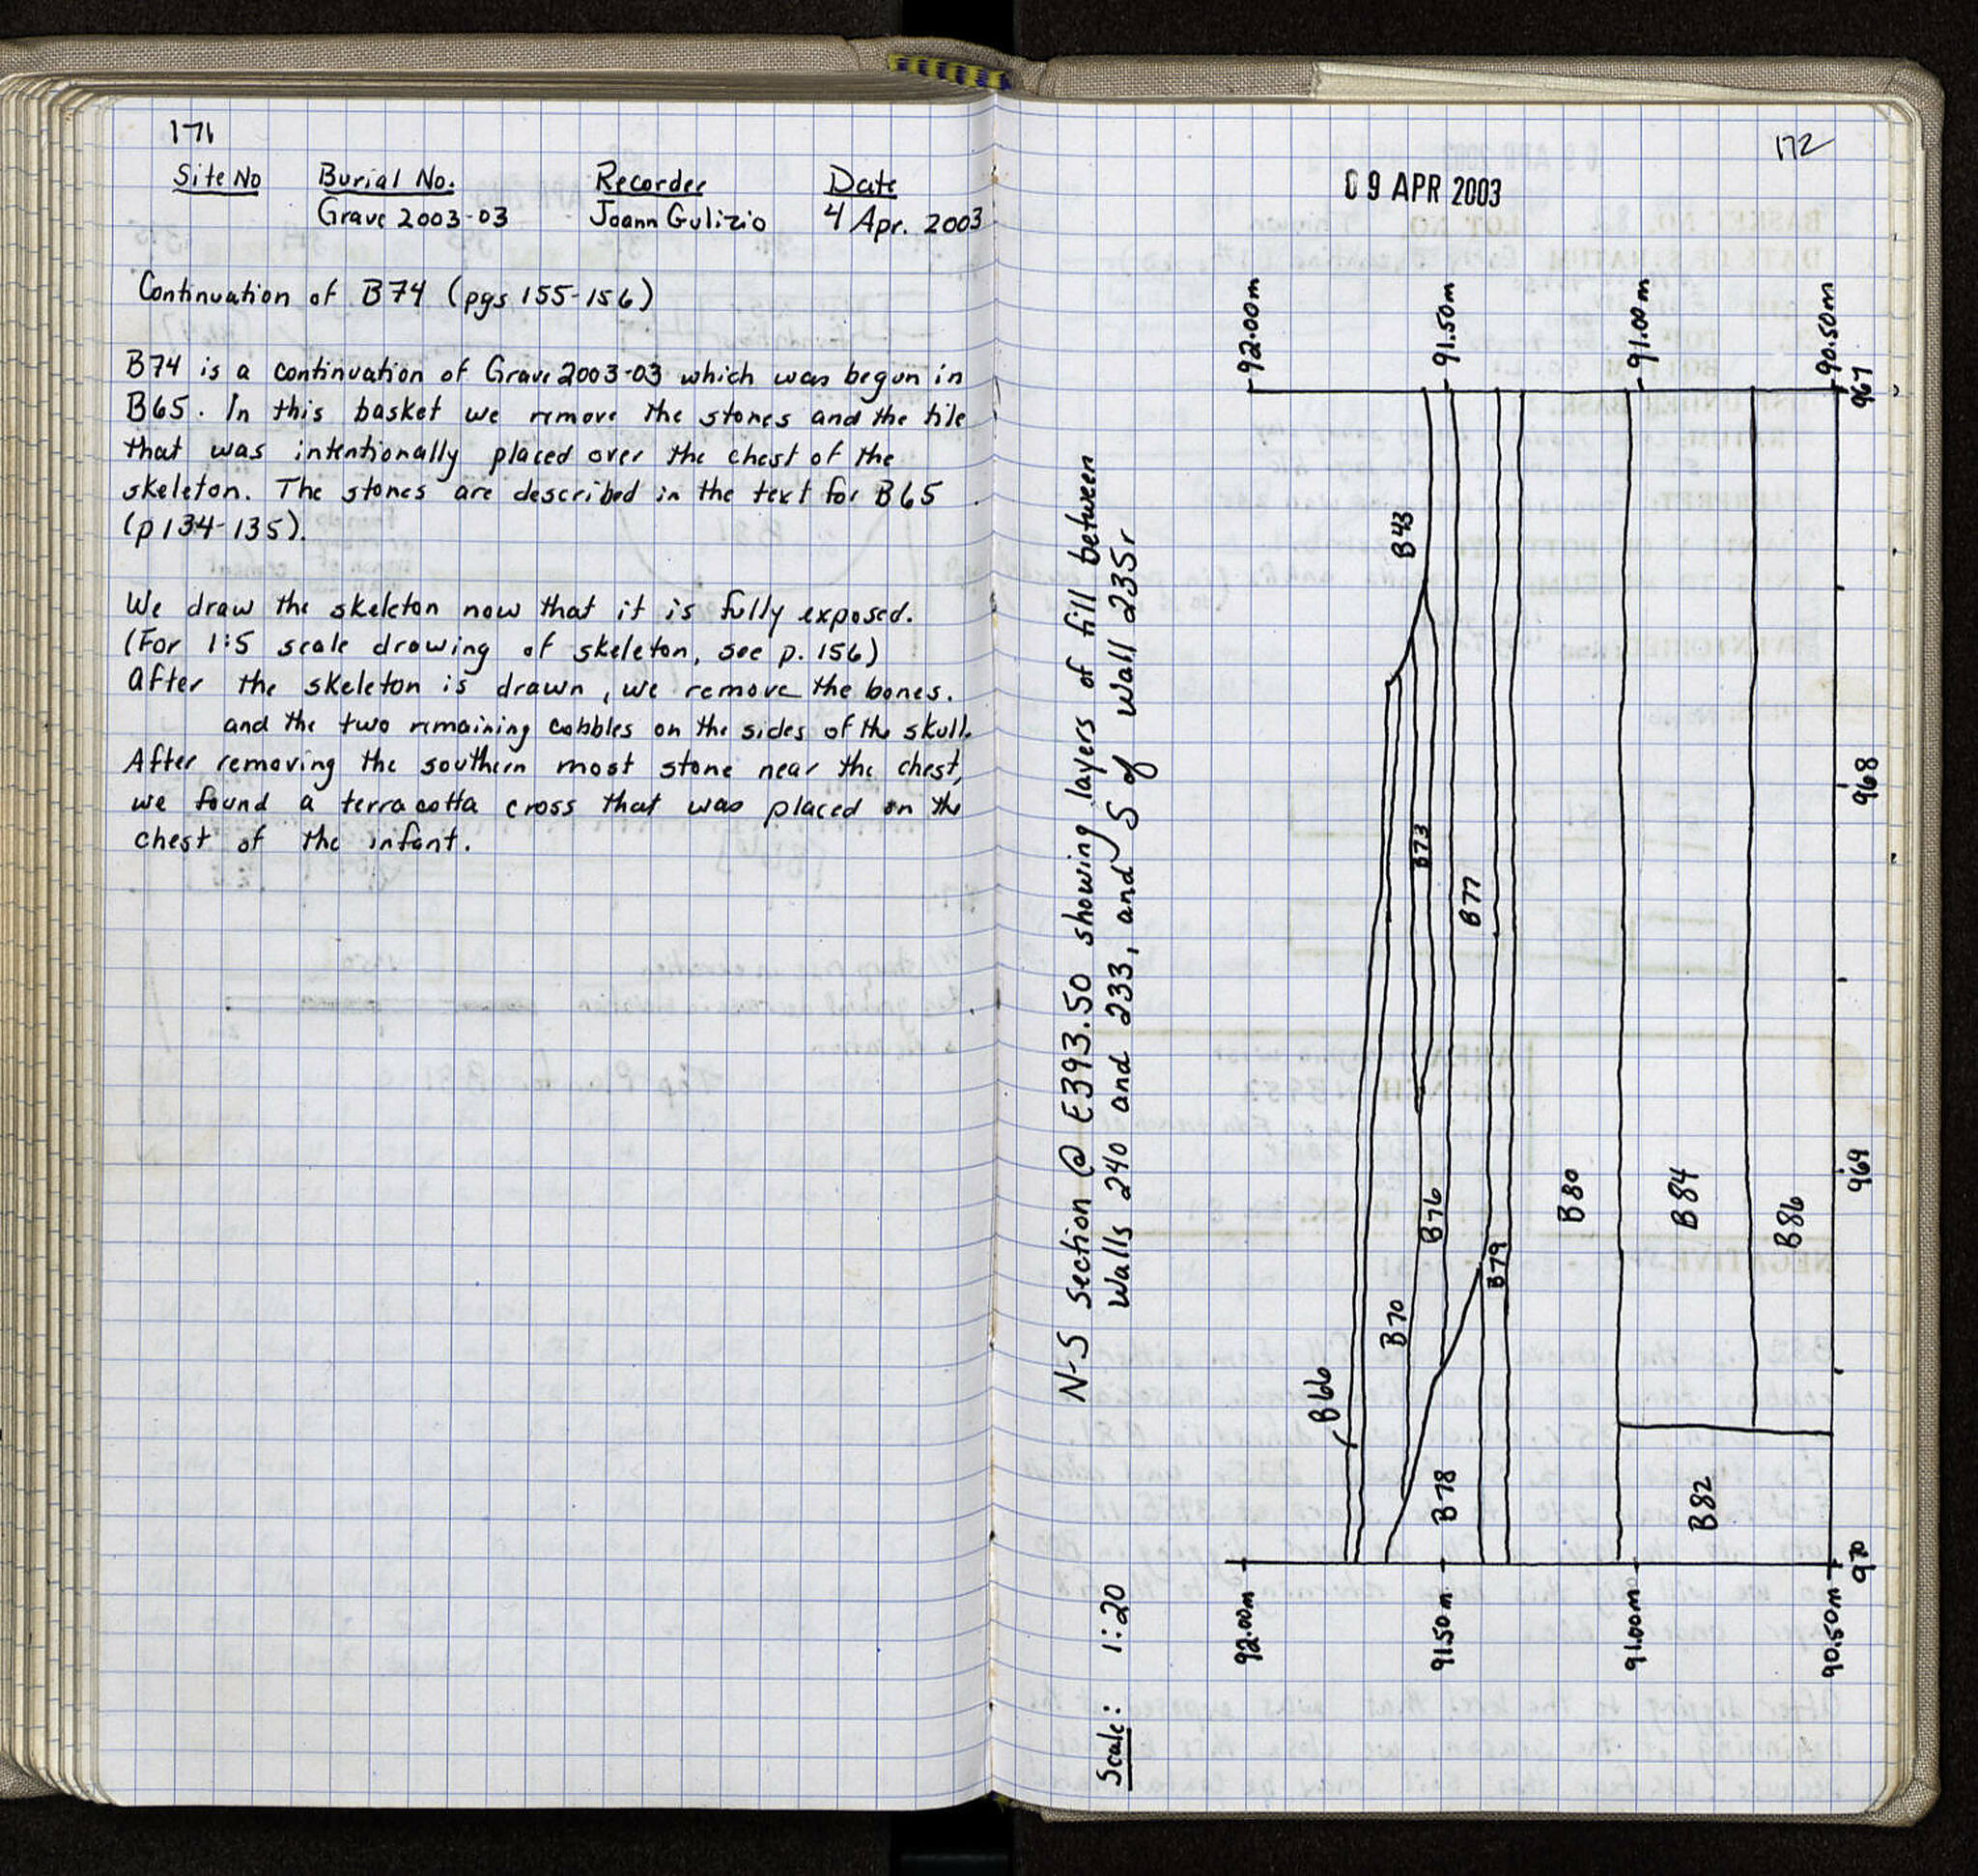 171
Site No Burial No. Recorder Date
Grave 2003-03 Joann Gulizio 4 Apr. 2003
Continuation of B74 (pgs 155-156)
B74 is a continuation of Grave 2003-03 which was begun in
B65. In this basket we remove the stones and the tile
that was intentionally placed over the chest of the
skeleton. The stones are described in the text for B65
(p134-135).
We draw the skeleton now that it is fully exposed.
(For 1:5 scale drawing of skeleton, see p. 156)
After the skeleton is drawn, we remove the bones.
and the two remaining cobbles on the sides of the skull.
After removing the southern most stone near the chest,
we found a terracotta cross that was placed on the
chest of the infant.
172
09 APR 2003
N-S section @ E393.50 showing layers of fill between
Walls 240 and 233, and S of Wall 235r
Scale: 1:20
92.00m
91.50m
91.00m
90.50m
967
968
969
970
B43
B73
B77
B66
B70
B76
B79
B78
B80
B84
B86
B82
92.00m
91.50m
91.00m
90.50m